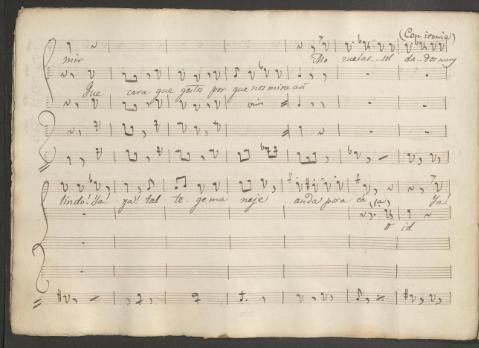 (Con ironia)
mir Mo zuelas.. sol da.. dos muy
Que cara que gestos por que nos miran
lindo! Ja! ya! tal te.. ge ma neje anda por a ca (ja) Ja!
id